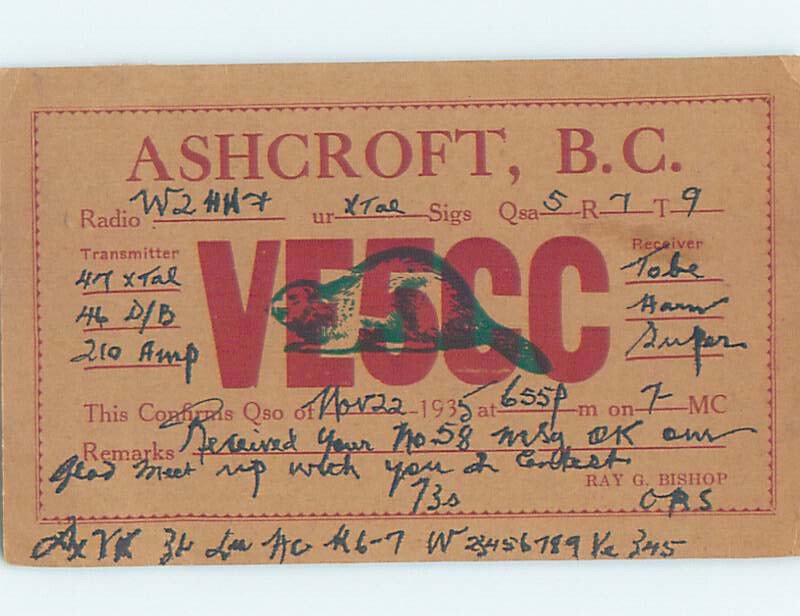 ASHCROFT, B.C.
Radio W2HHX ur XTal Sigs Qsa 5 R 7 T 9
Transmitter Receiver
47 XTal Tobe
46 D/B
210 Amp Super
VE5CC
This Confirms Qso of Nov 22 - 1935 at 655 P m on 7 MC
Remarks Received your No 58 msg OK om
Glad meet up with you in Contest
RAY G. BISHOP
73s ORS
VK K6-7 W 23456789 Ve 345